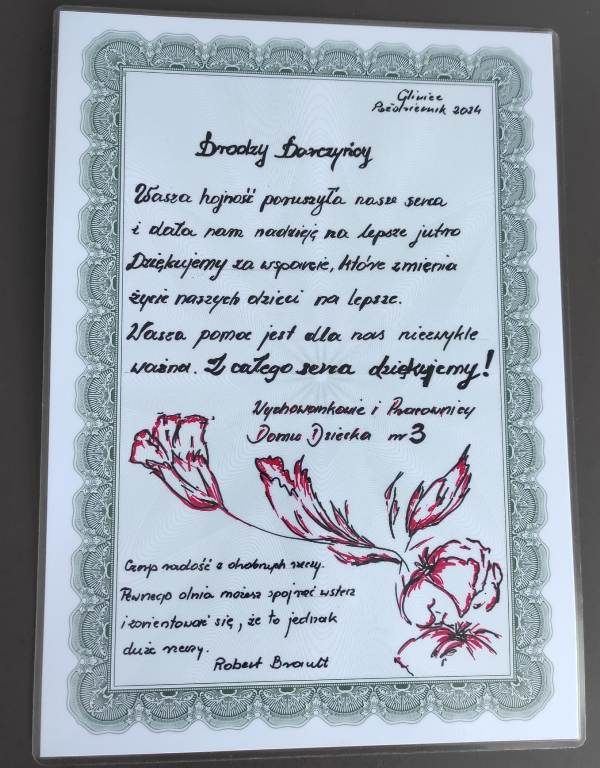 Gliwice
Październik 2024
Drodzy Darczyńcy
Wasza hojność poruszyła nasze serca
i dała nam nadzieję na lepsze jutro
Dziękujemy za wsparcie, które zmienia
życie naszych dzieci na lepsze.
Wasza pomoc jest dla nas niezwykle
ważna. Z całego serca dziękujemy!
Wychowankowie i Pracownicy
Domu Dziecka nr 3
Czerp radość z drobnych rzeczy.
Pewnego dnia możesz spojrzeć wstecz
i zorientować się, że to jednak
duże rzeczy.
Robert Brault